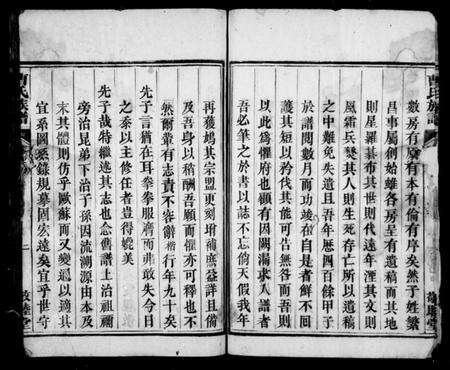 數房有廢有本有倫有序矣然于姓繁
昌事屬創始雖各房呈有遺稿而其地
則星羅碁布其世則代遠年湮其文則
風霜兵燹其人則生死存亡所以遺稿
之中難免失遺且吾年歷四百餘甲子
於譜閱數月而功竣在自是者鮮不回
護其短以矜伐其能可告無咎而吾則
以此為懼府也顧有因闕漏求入譜者
吾必筆之於書以誌不忘倘天假我年
再獲媽其宗盟更刻坿補庶益詳且備
及吾身以稿酬吾願而亦可釋也不
然爾輩有志責不容辭 楷 行年九十矣
先子言猶在耳拳拳服膺而弗敢失今日
之忝以主修任者豈得媲美
先子哉特繼述其志也念舊譜上治祖禰
旁治昆弟下治子孫因流溯源由本及
末其體則仿乎歐蘇而又變通以適其
宜系圖燕錄規摹固宏遠矣宜乎世守
曹氏族譜
二
敦睦堂